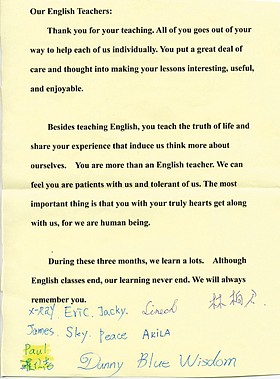 Our English Teachers:
Thank you for your teaching. All of you goes out of your
way to help each of us individually. You put a great deal of
care and thought into making your lessons interesting, useful,
and enjoyable.
Besides teaching English, you teach the truth of life and
share your experience that induce us think more about
ourselves. You are more than an English teacher. We can
feel you are patients with us and tolerant of us. The most
important thing is that you with your truly hearts get along
with us, for we are human being.
During these three months, we learn a lots. Although
English classes end, our learning never end. We will always
remember you.
Eric. Jacky. Lincoln
James. Sky. Peace AKiLA
Paul
Danny Blue Wisdom